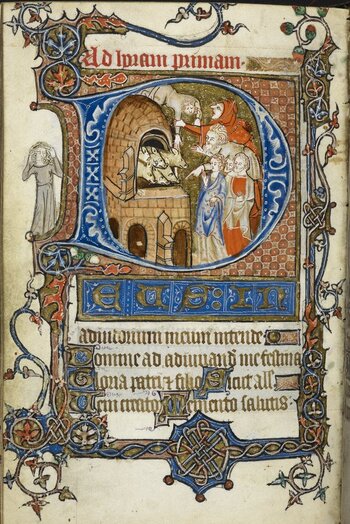 Ad horam primam.
DEUS : IN
adiutorium meum intende
Domine ad adiuvand me festina
Gloria patri & filio Sicut
Memento salutis